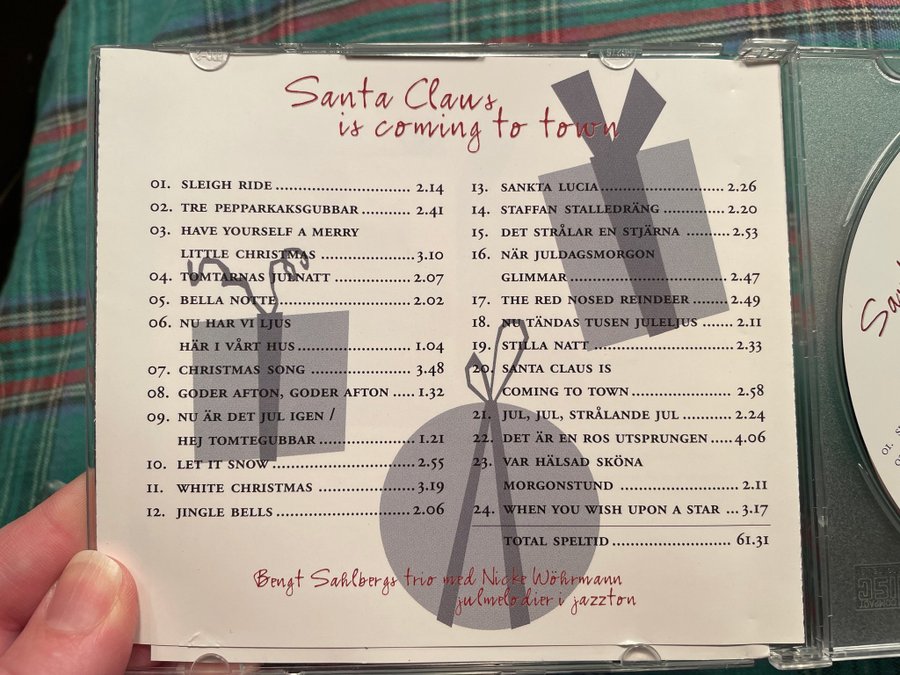 Santa Claus
is coming to town
01. SLEIGH RIDE ........................................ 2.14
02. TRE PEPPARKAKSGUBBAR ........... 2.41
03. HAVE YOURSELF A MERRY
LITTLE CHRISTMAS ......................... 3.10
04. TOMTARNAS JULNATT ................. 2.07
05. BELLA NOTTE ................................. 2.02
06. NU HAR VI LJUS
HÄR I VÅRT HUS ............................. 1.04
07. CHRISTMAS SONG ......................... 3.48
08. GODER AFTON, GODER AFTON ..... 1.32
09. NU ÄR DET JUL IGEN /
HEJ TOMTEGUBBAR ........................ 1.21
10. LET IT SNOW .................................. 2.55
11. WHITE CHRISTMAS ........................ 3.19
12. JINGLE BELLS .................................. 2.06
13. SANKTA LUCIA .............................. 2.26
14. STAFFAN STALLEDRÄNG .............. 2.20
15. DET STRÅLAR EN STJÄRNA ........... 2.53
16. NÄR JULDAGSMORGON
GLIMMAR ....................................... 2.47
17. THE RED NOSED REINDEER ......... 2.49
18. NU TÄNDAS TUSEN JULELJUS ....... 2.11
19. STILLA NATT .................................. 2.33
20. SANTA CLAUS IS
COMING TO TOWN ......................... 2.58
21. JUL, JUL, STRÅLANDE JUL ............. 2.24
22. DET ÄR EN ROS UTSPRUNGEN ..... 4.06
23. VAR HÄLSAD SKÖNA
MORGONSTUND ........................... 2.11
24. WHEN YOU WISH UPON A STAR ... 3.17
TOTAL SPELTID ............................. 61.31
Bengt Sahlbergs trio med Nicke Wöhrmann
julmelodier i jazzton